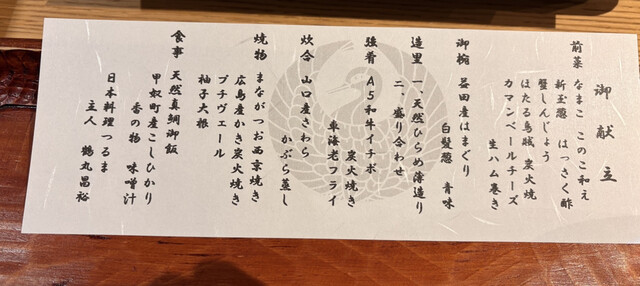 御献立
前菜 なまこ このこ和え
新玉葱 はっさく酢
蟹しんじょう
ほたる烏賊 炭火焼
カマンベールチーズ
生ハム巻き
御椀 はまぐり
白髪葱 青味
造里 一、天然ひらめ薄造り
二、盛り合わせ
強肴 A5和牛イチボ
炭火焼き
車海老フライ
炊合 山口産さわら
かぶら蒸し
焼物 まながつお西京焼き
広島産かき炭火焼き
プチヴェール
柚子大根
食事 天然真鯛御飯
甲奴町産こしひかり
香の物 味噌汁
日本料理つるま
主人 鶴丸昌裕